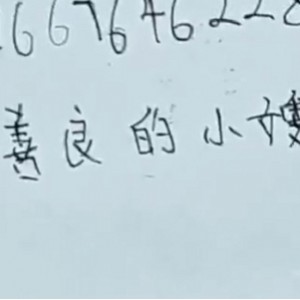 667646228
善良的小嫂